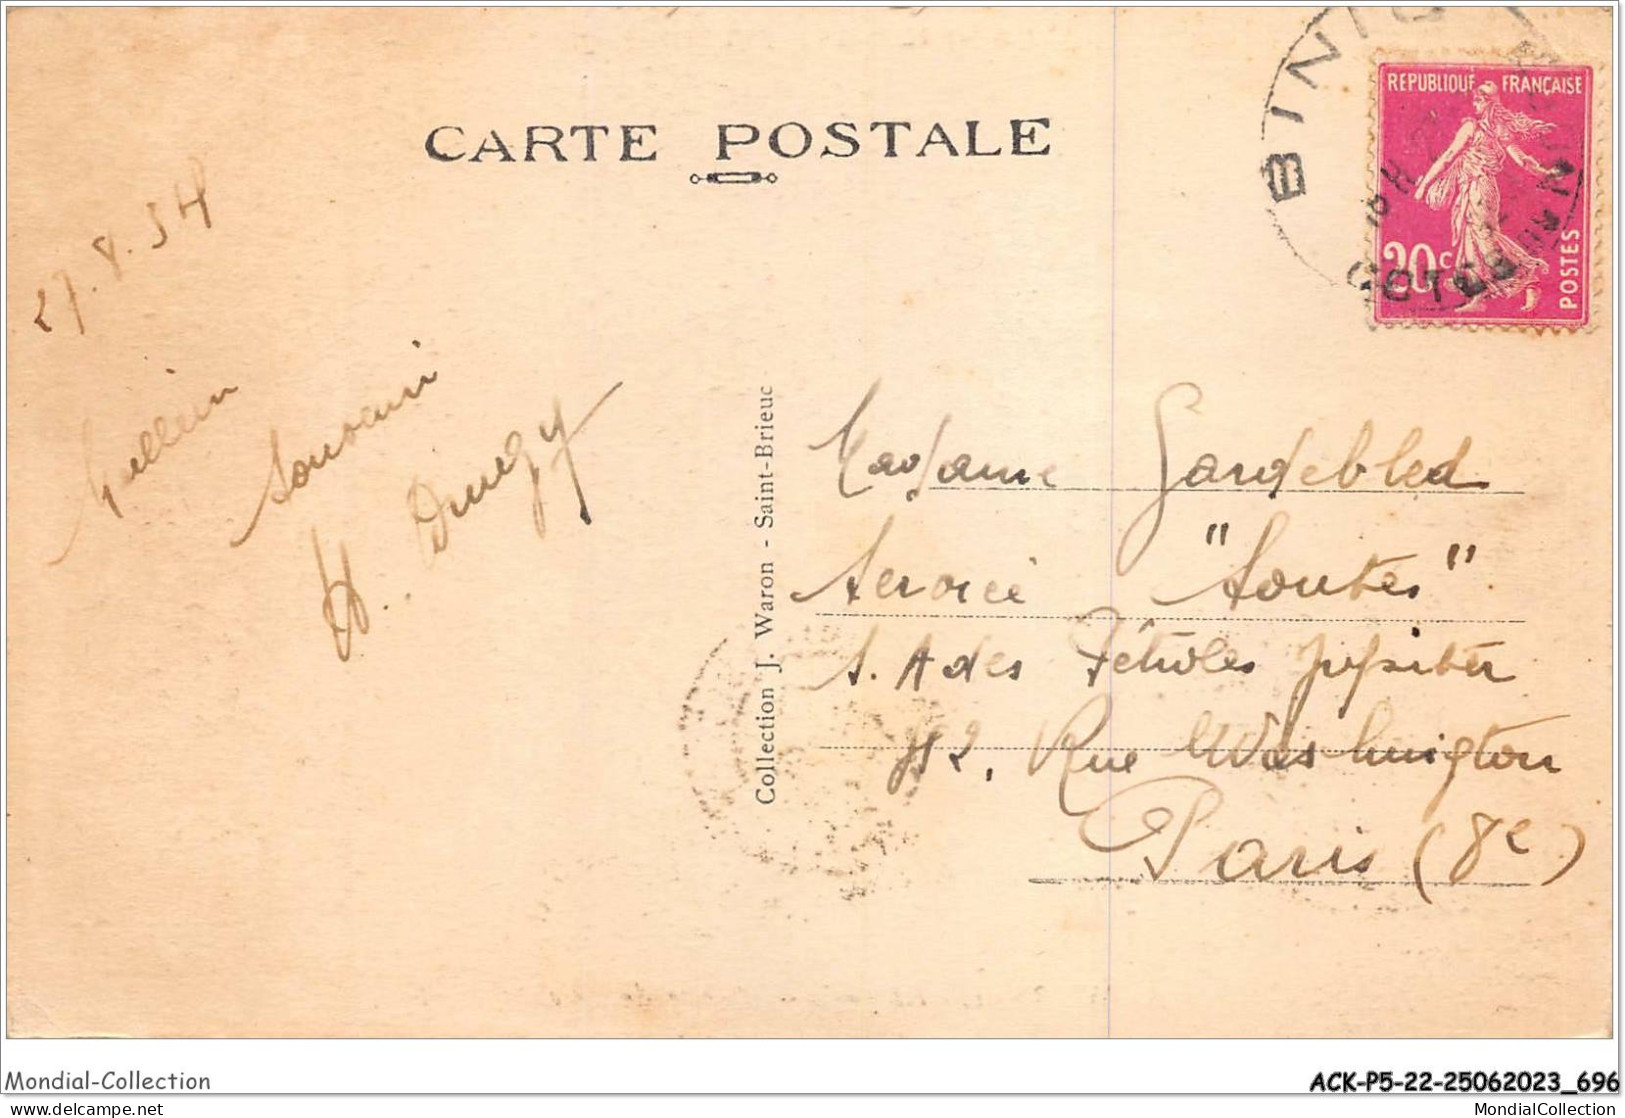 CARTE POSTALE
BINIC
REPUBLIQUE FRANÇAISE
20c
POSTES
COTES DU NORD
27.8.34
Meilleur
Souvenir
H. Drugy
Collection J. Waron - Saint-Brieuc
Madame Gardebled
Service "Soutes"
S. A des Pétroles Jupiter
42, Rue Washington
Paris (8e)
Mondial-Collection
ACK-P5-22-25062023_696
www.delcampe.net
MondialCollection